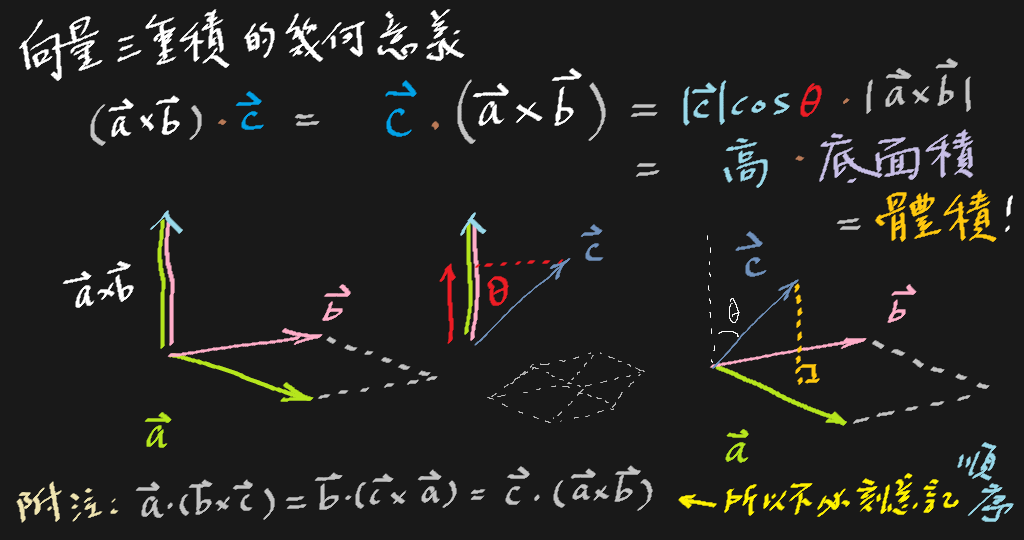 向量三重積的幾何意義
(a⃗×b⃗)·c⃗ = c⃗·(a⃗×b⃗) = |c⃗|cosθ·|a⃗×b⃗|
= 高·底面積
= 體積!
a⃗×b⃗
b⃗
a⃗
θ
c⃗
c⃗
θ
b⃗
a⃗
附注: a⃗·(b⃗×c⃗)=b⃗·(c⃗×a⃗)=c⃗·(a⃗×b⃗) ←所以不必刻意記順序